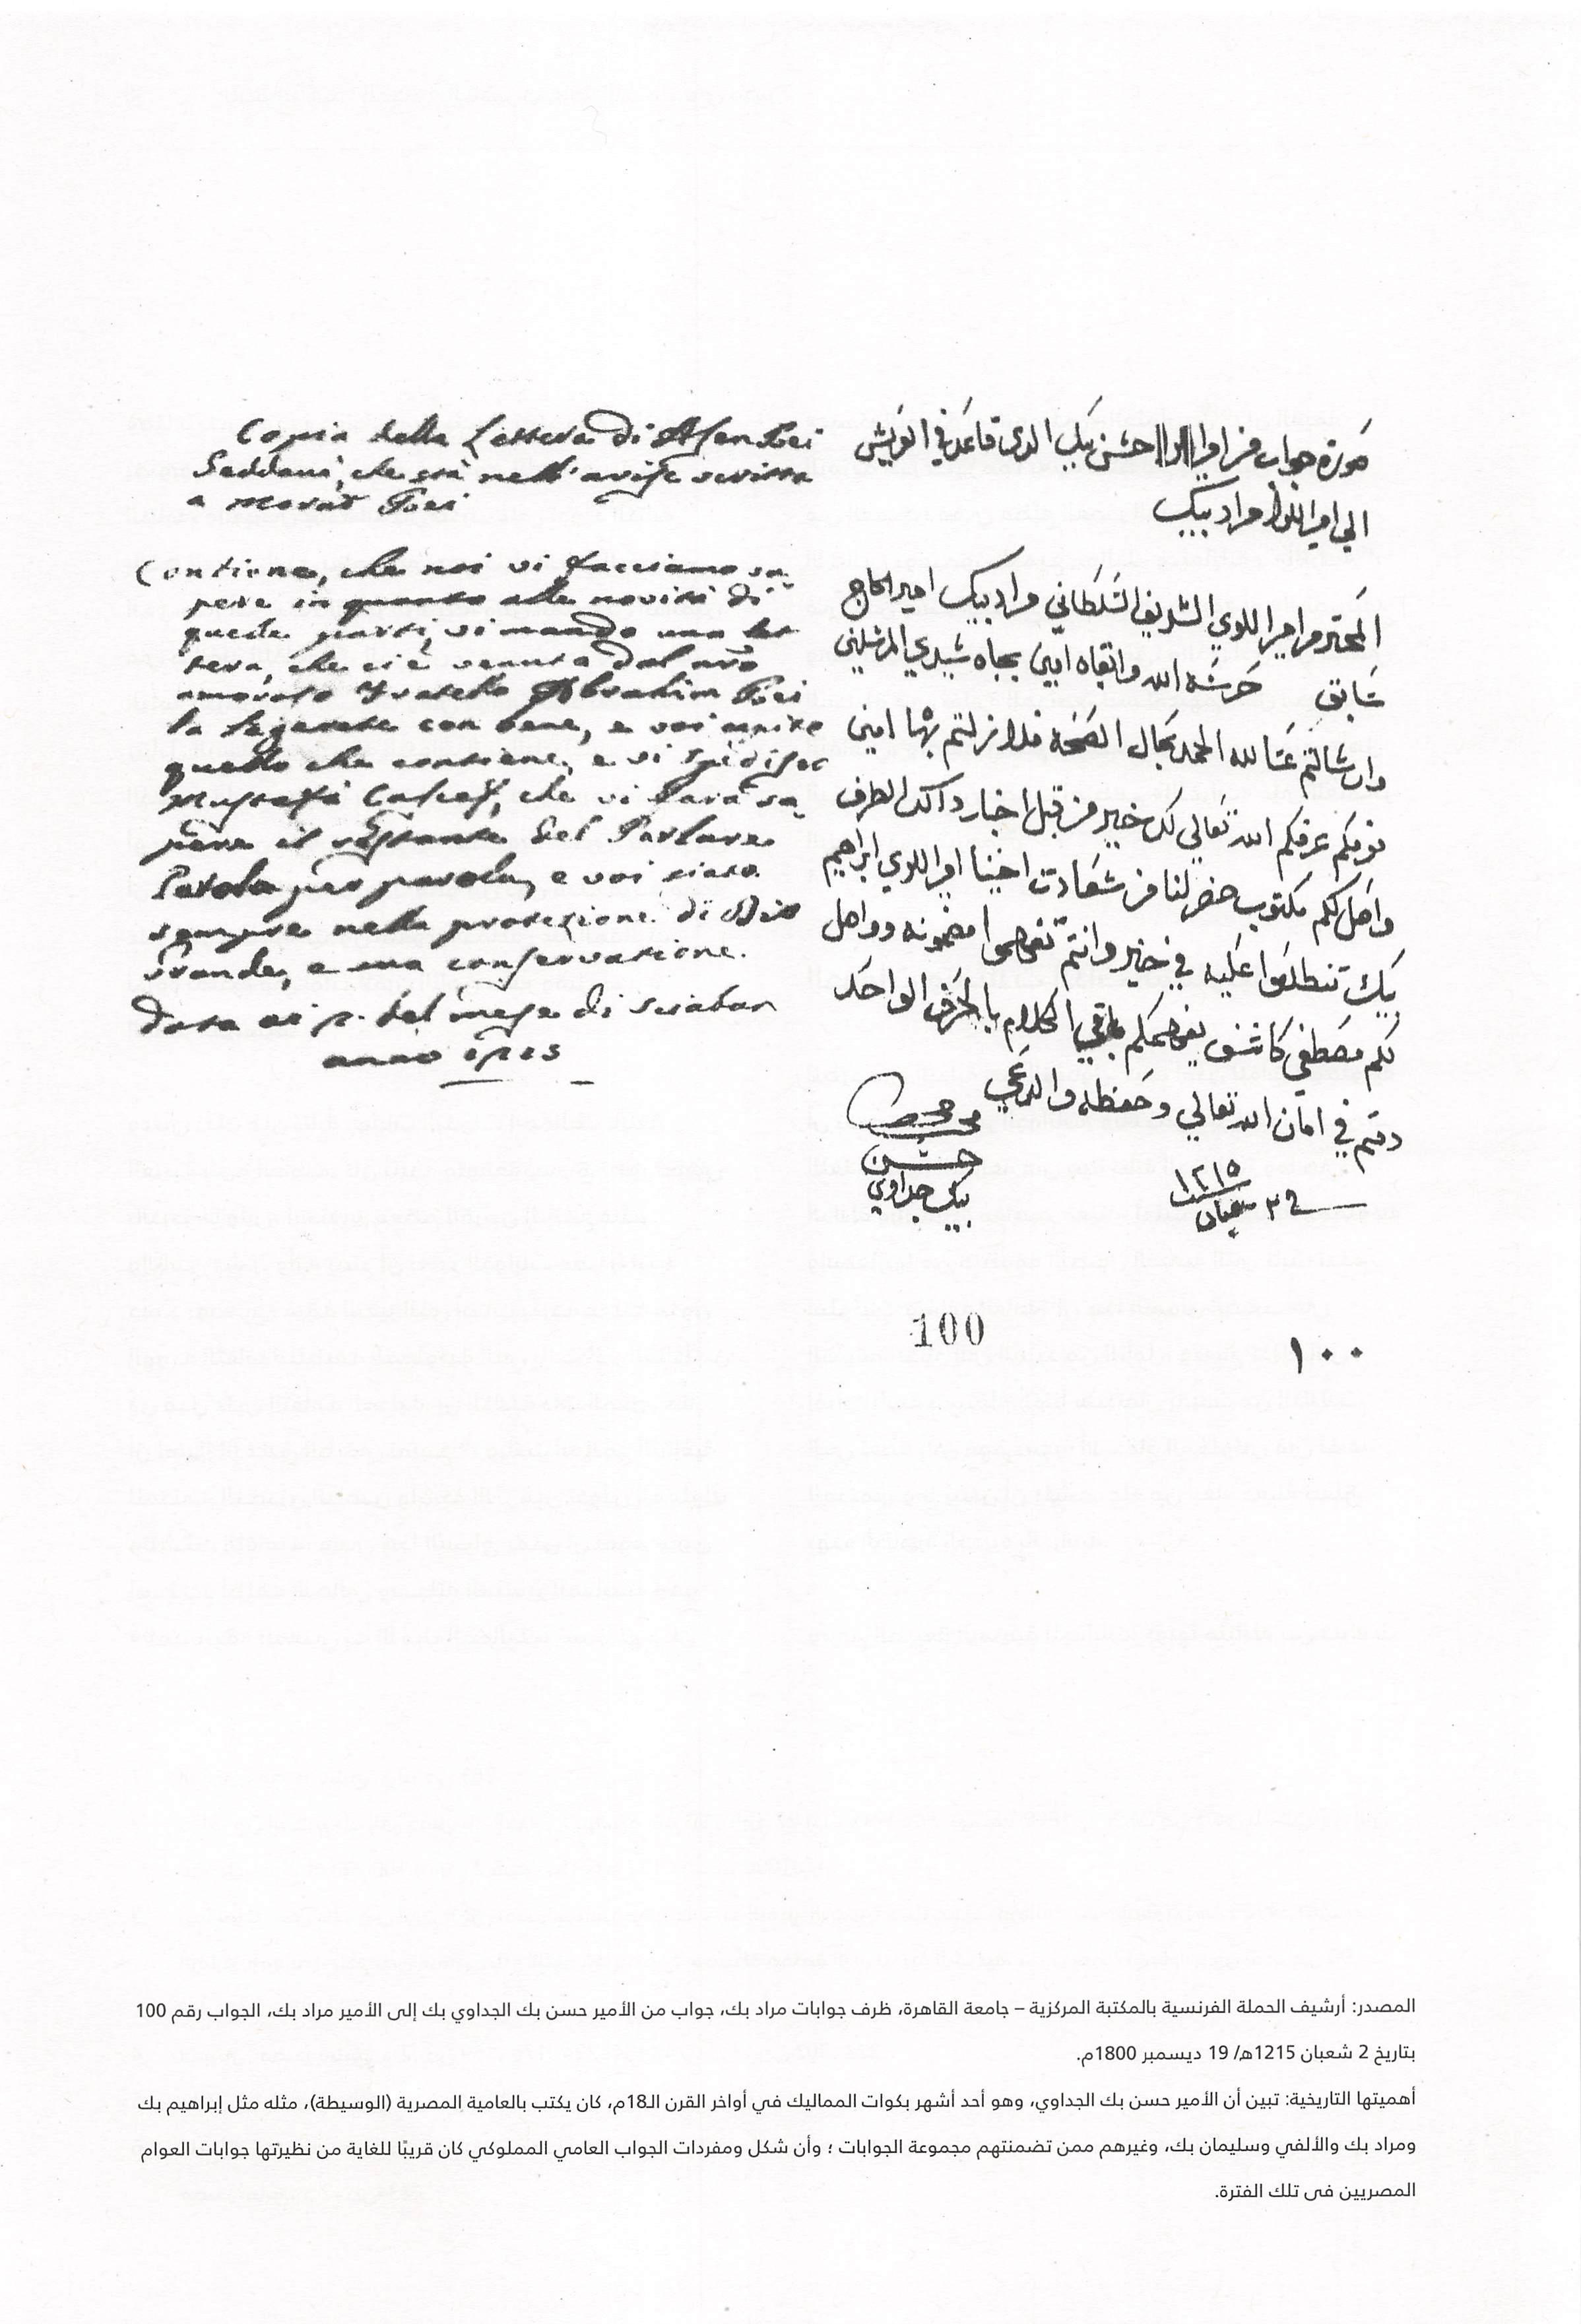 صورة جواب من امير اللوا حسن بيك الدى قاعد في العريش
الي امير اللوا مراد بيك
المحترم امير اللوي الشريف السلطاني مراد بيك امير الحاج
سابق حرسه الله وابقاه امين بجاه سيدي المرسلين
وان سالتم عنا لله الحمد بحال الصحه فلا زلتم بها امين
نعرفكم عرفكم الله تعالي كل خير من قبل اخبار دالك الطرف
واصل لكم مكتوب حضر لنا من سعادت اخينا امير اللوي ابراهيم
بيك تنطلعوا عليه في خير وانتم تفهموا مضمونه وواصل
لكم مصطفي كاشف يفهمكم باقي الكلام بالحرف الواحد
دمتم في امان الله تعالي وحفظه والدعي
حسن
بيك جداوي
١٢١٥
في ٢ شعبان
Copia della Lettera di Assan Bei
Geddaui, che stà nell'arisc scritta
a Morat Bei
Contiene, che noi vi facciamo sa-
pere in quanto alle novità di
queste parti, vi mando una let-
tera, che ci è venuta dal nro
amoroso Fratello Abrahim Bei
la legerete con bene, e voi capite
quello che contiene, e vi spedisco
Mustafà Cascef, che vi farà sa-
pere il restante del Parlare
Parola per parola, e voi siate
sempre nella protezione di Dio
Grande, e sua conservazione.
Data ai 2. del mese di Sciaban
anno 1215
100
١٠٠
المصدر: أرشيف الحملة الفرنسية بالمكتبة المركزية – جامعة القاهرة، ظرف جوابات مراد بك، جواب من الأمير حسن بك الجداوي بك إلى الأمير مراد بك، الجواب رقم 100
بتاريخ 2 شعبان 1215هـ/ 19 ديسمبر 1800م.
أهميتها التاريخية: تبين أن الأمير حسن بك الجداوي، وهو أحد أشهر بكوات المماليك في أواخر القرن الـ18م، كان يكتب بالعامية المصرية (الوسيطة)، مثله مثل إبراهيم بك
ومراد بك والألفي وسليمان بك، وغيرهم ممن تضمنتهم مجموعة الجوابات ؛ وأن شكل ومفردات الجواب العامي المملوكي كان قريبًا للغاية من نظيرتها جوابات العوام
المصريين فى تلك الفترة.